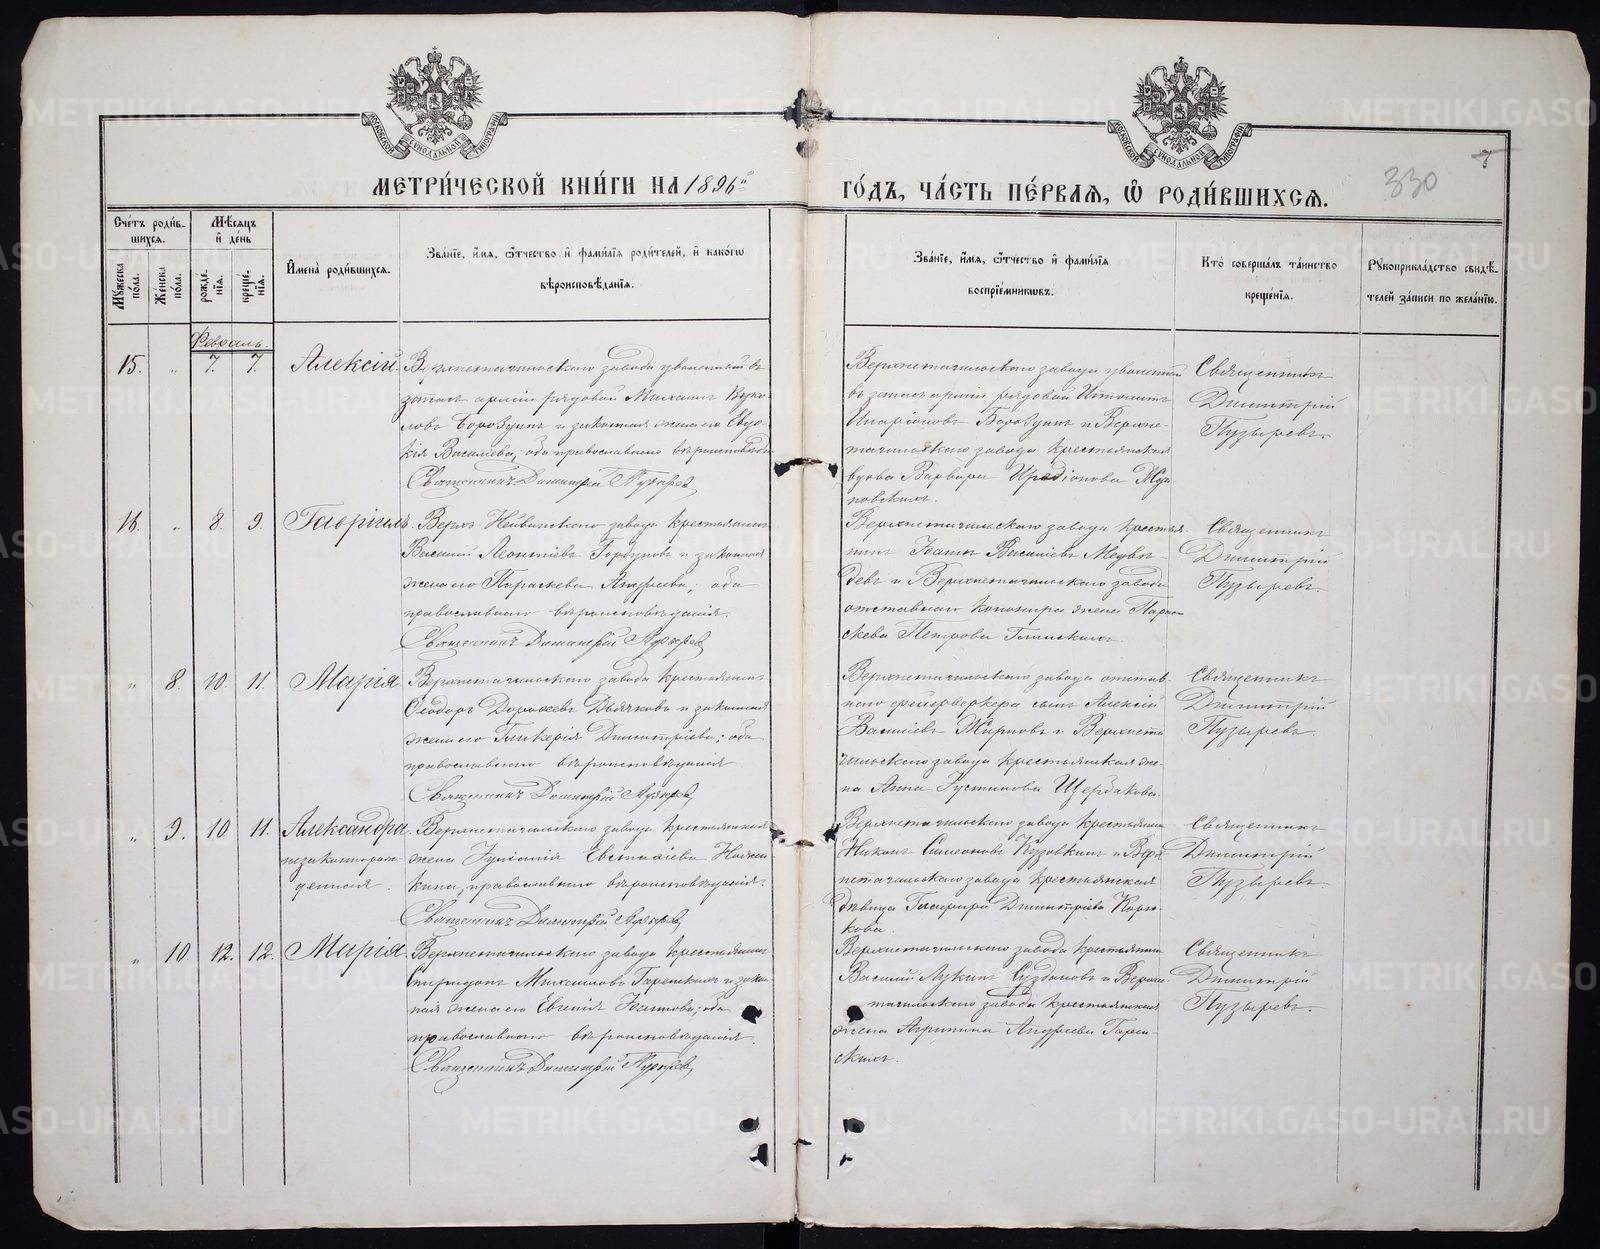 МОСКОВСКОЙ СѴНОДАЛЬНОЙ ТИПОГРАФІИ
МОСКОВСКОЙ СѴНОДАЛЬНОЙ ТИПОГРАФІИ
МЕТРИ́ЧЕСКОЙ КНИ́ГИ НА 1896й
ГО́ДЪ, ЧА́СТЬ ПЕ́РВАЯ, Ѽ РОДИ́ВШИХСЯ.
330
7
Сче́тъ роди́в-
шихся.
Мѣ́сяцъ
и҆ де́нь
Му́жеска по́ла.
Же́нска по́ла.
рожде́-
нїѧ.
креще́-
нїѧ.
И҆мена̀ роди́вшихся.
Зва́нїе, и҆́мѧ, ѻ҆́тчество и҆ фами́лїѧ роди́телей, и҆ како́гѡ
вѣроисповѣ́данїѧ.
Зва́нїе, и҆́мѧ, ѻ҆́тчество и҆ фами́лїѧ
воспрїе́мниковъ.
Кто̀ соверша́лъ та́инство
креще́нїѧ.
Рꙋкоприкла́дство свидѣ́-
телей за́писи по жела́нїю.
Февраль.
15. „ 7. 7. Алексій.
Верхнетагильскаго завода уволенный въ
запас арміи рядовой Михаилъ Вуко-
ловъ Бороздинъ и законная жена его Евдо-
кія Васильева, оба православнаго вѣроисповѣд.
Священникъ Димитрій Пузырев
Верхнетагильскаго завода уволенный
въ запас арміи рядовой Ипполитъ
Иларіоновъ Бороздинъ и Верхне-
тагильскаго завода крестьянская
вдова Варвара Иродіонова
Священникъ
Димитрій
Пузыревъ.
16. „ 8. 9. Гавріилъ.
Верхъ-Нейвинскаго завода крестьянинъ
Василій Леонтіевъ Горбуновъ и законная
жена его Параскева Андреева; оба
православнаго вѣроисповѣданія.
Священникъ Димитрій Пузырев
Верхнетагильскаго завода крестья-
нинъ Іоаннъ Василіевъ Медвѣ-
девъ и Верхнетагильскаго завода
отставнаго канонира жена Пара-
скева Петрова Глинскихъ.
Священникъ
Димитрій
Пузыревъ.
„ 8. 10. 11. Марія
Верхнетагильскаго завода крестьянинъ
Ѳеодоръ Дороѳеевъ Дьячковъ и законная
жена его Гликерія Димитріева; оба
православнаго вѣроисповѣданія
Священникъ Димитрій Пузырев
Верхнетагильскаго завода отстав-
наго фейерверкера сынъ Алексій
Василіевъ Жирновъ и Верхнета-
гильскаго завода крестьянская же-
на Анна Іустинова Щербакова.
Священникъ
Димитрій
Пузыревъ.
„ 9. 10 11. Александра
незаконорож-
денная.
Верхнетагильскаго завода крестьянская
жена Іуліанія Евстаѳіева
православнаго вѣроисповѣданія.
Священникъ Димитрій Пузырев
Верхнетагильскаго завода крестьянинъ
Никонъ Симеоновъ Кузовкинъ и Верх-
нетагильскаго завода крестьянская
дѣвица Глафира Димитріева
Священникъ
Димитрій
Пузыревъ
„ 10 12. 12. Марія
Верхнетагильскаго завода крестьянинъ
Спиридонъ Михаиловъ Гаренскихъ и закон-
ная жена его Евгенія Іоаннова; оба
православнаго вѣроисповѣданія.
Священникъ Димитрій Пузырев
Верхнетагильскаго завода крестьянинъ
Василій Лукинъ Суздаловъ и Верхне-
тагильскаго завода крестьянская
жена Агрипина Андреева Гарен-
скихъ.
Священникъ
Димитрій
Пузыревъ.
METRIKI.GASO-URAL.RU